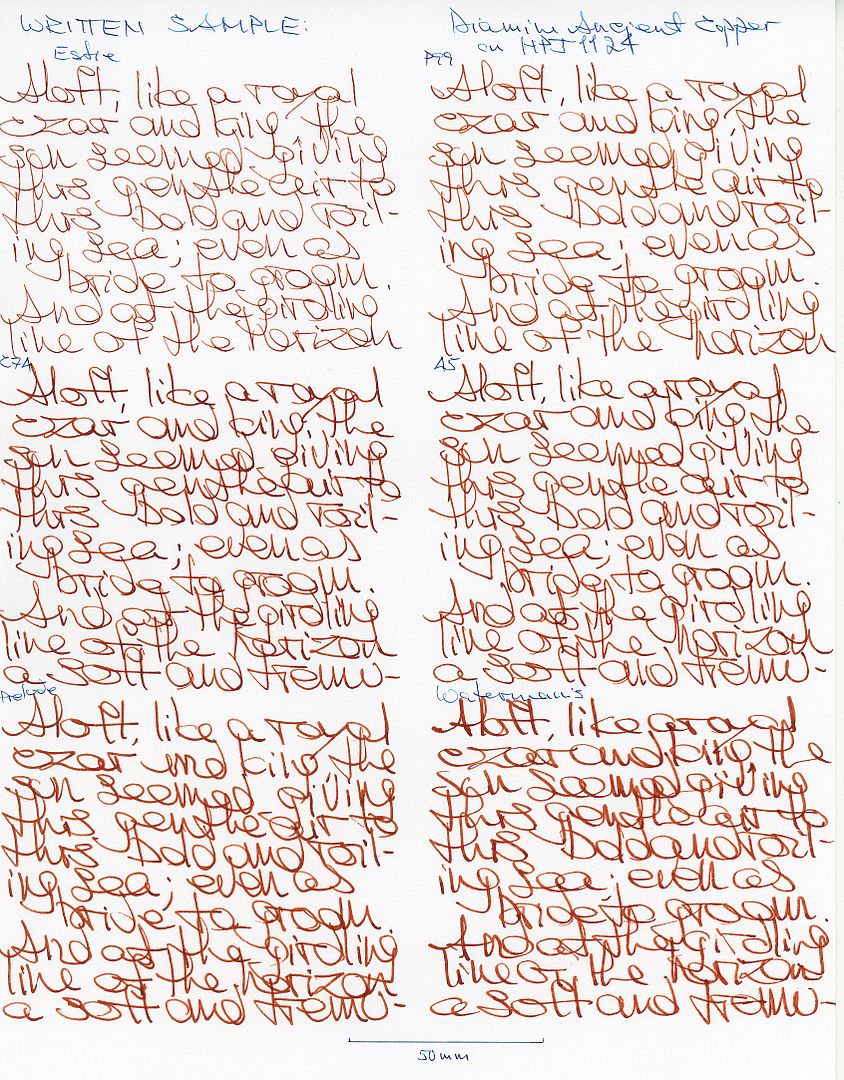 WRITTEN SAMPLE:
Diamine Ancient Copper
on HPJ 1124
Estie
Aloft, like a royal
czar and king, the
sun seemed giving
this gentle air to
this bold and roll-
ing sea; even as
bride to groom.
And at the girdling
line of the horizon
P99
Aloft, like a royal
czar and king, the
sun seemed giving
this gentle air to
this bold and roll-
ing sea; even as
bride to groom.
And at the girdling
line of the horizon
C74
Aloft, like a royal
czar and king, the
sun seemed giving
this gentle air to
this bold and roll-
ing sea; even as
bride to groom.
And at the girdling
line of the horizon
a soft and tremu-
45
Aloft, like a royal
czar and king, the
sun seemed giving
this gentle air to
this bold and roll-
ing sea; even as
bride to groom.
And at the girdling
line of the horizon
a soft and tremu-
Prelude
Aloft, like a royal
czar and king, the
sun seemed giving
this gentle air to
this bold and roll-
ing sea; even as
bride to groom.
And at the girdling
line of the horizon
a soft and tremu-
Waterman's
Aloft, like a royal
czar and king, the
sun seemed giving
this gentle air to
this bold and roll-
ing sea; even as
bride to groom.
And at the girdling
line of the horizon
a soft and tremu-
50mm